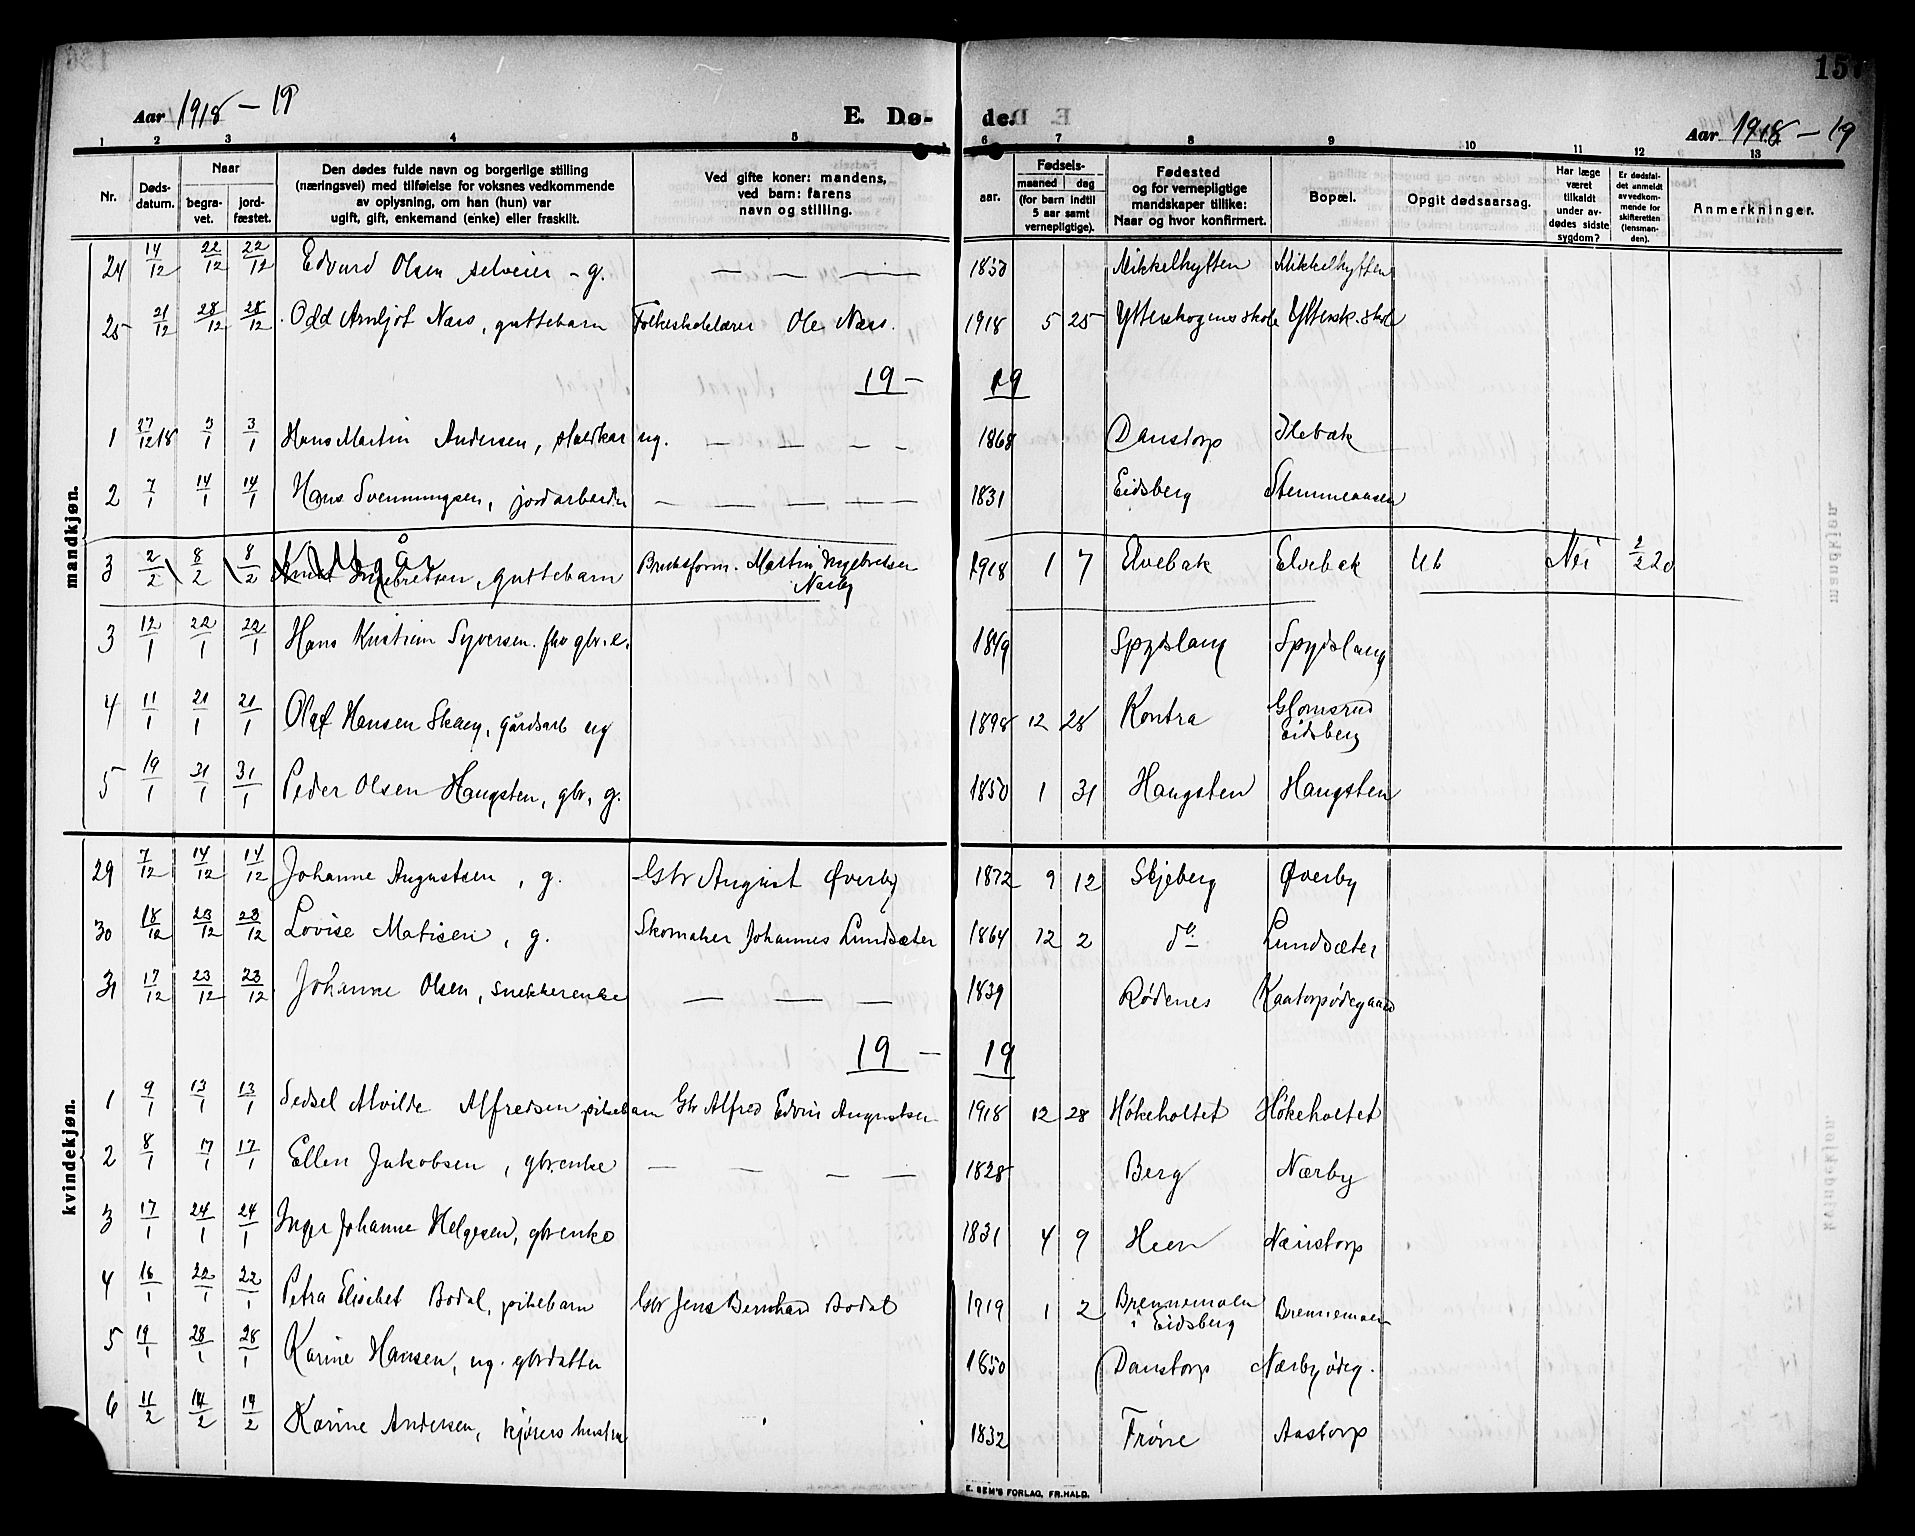 Aar 1918 – 19
E. Dø- de.
157
Aar 1918 – 19
1 2 3 4 5 6 7 8 9 10 11 12 13
Nr. Døds-datum. Naar begra-vet. jord-fæstet. Den dødes fulde navn og borgerlige stilling (næringsvei) med tilføielse for voksnes vedkommende av oplysning, om han (hun) var ugift, gift, enkemand (enke) eller fraskilt. Ved gifte koner: mandens, ved barn: farens navn og stilling. aar. Fødsels- maaned dag (for barn indtil 5 aar samt vernepligtige). Fødested og for vernepligtige mandskaper tillike: Naar og hvor konfirmert. Bopæl. Opgit dødsaarsag. Har læge været tilkaldt under av-dødes sidste sygdom? Er dødsfal-det anmeldt av vedkom-mende for skifteretten (lensman-den). Anmerkninger.
mandkjøn.
24 14/12 22/12 22/12 Edvard Olsen selveier – g. — — — 1850 Mikkelhytten Mikkelhytten
25 21/12 28/12 28/12 Odd Arnljot Næss, guttebarn Folkeskolelærer Ole Næss. 1918 5 25 Ytterskogens skole Yttersk. skole
19 – 19
1 27/12 18 3/1 3/1 Hans Martin Andersen, staldkar ug. — — — 1868 Danstorp Ilebæk
2 7/1 14/1 14/1 Hans Svenningsen, jordarbeider — — — — 1831 Eidsberg
3 2/2 8/2 8/2 Utgår Ingebretsen, guttebarn Bruksform. Martin Ingebretsen Nærby 1918 1 7 Elvebæk Elvebæk Ub Nei 2/2 20
3 12/1 22/1 22/1 Hans Kristian Syversen. fhv gbr. e. 1849 Spydslang Spydslang
4 11/1 21/1 21/1 Olaf Hansen Skaug, gårdsarb ug 1898 12 28 Kontra Glomsrud Eidsberg
5 19/1 31/1 31/1 Peder Olsen Haugsten, gbr, g. 1850 1 31 Haugsten Haugsten
kvindekjøn.
29 7/12 14/12 14/12 Johanne Augustsen, g. Gbr August Øverby 1872 9 12 Skjeberg Øverby
30 18/12 23/12 23/12 Lovise Matisen, g. Skomaker Johannes Lundsæter 1864 12 2 do. Lundsæter
31 17/12 23/12 23/12 Johanne Olsen, snekkerenke — — — 1839 Rødenes Kaatorpødegaard
19 – 19
1 9/1 13/1 13/1 Sedsel Alvilde Alfredsen pikebarn Gbr Alfred Edvin Augustsen 1918 12 28 Hökeholtet Hökeholtet
2 8/1 17/1 17/1 Ellen Jakobsen, gbrenke — — — — 1828 Berg Nærby
3 17/1 24/1 24/1 Inger Johanne Helgesen, gbrenke 1831 4 9 Heen Næristorp
4 16/1 22/1 22/1 Petra Elisebet Bodal, pikebarn Gbr Jens Bernhard Bodal 1919 1 2 Brennemoen i Eidsberg Brennemoen
5 19/1 28/1 28/1 Karine Hansen, ug. gbrdatter 1850 Danstorp Nærby ødeg.
6 11/2 14/2 14/2 Karine Andersen, kjørers hustru 1832 Frøne Aastorp
E. SEM'S FORLAG, FR.HALD.